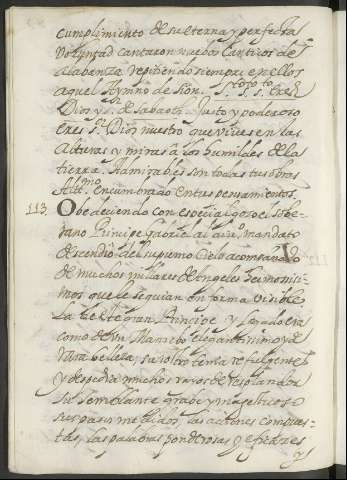 cumplimiento de su eterna y perfecta
Voluntad cantaron nuebos Canticos de
alabanza repitiendo siempre en ellos
aquel Hymno de Sion. S.to S.to S.to eres
Dios y S.r de Sabaoth. Justo y poderoso
Eres S.r Dios nuestro que vives en las
Alturas y miras a los humildes de la
tierra. Admirables son todas tus obras
Alt.mo encumbrado en tus pensamientos.
113 Obedeciendo con especial goso el sobe-
rano Principe Gabriel al divi.o mandato
descendió del supremo Cielo acompañado
de muchos millares de Angeles hermosis-
simos que le seguian en forma visible
La de este gran Principe y legado era
como de un Mancebo elegantisimo y de
rara belleza; su rostro tenia refulgente
y despedia muchos rayos de resplandor
su semblante grabe y magestuoso
sus pasos medidos, las acciones compues-
tas, las palabras ponderosas y eficaces
y